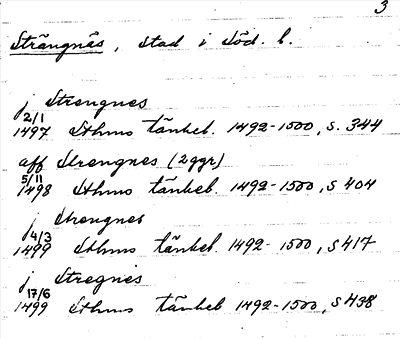 3
Strängnäs, stad i Söd. l.
j Strengnes
2/1 1497 Sthms tänkeb. 1492-1500, s. 344
aff Strengnes (2ggr)
5/11 1498 Sthms tänkeb. 1492-1500, s 404
j Strengnes
4/3 1499 Sthms tänkeb. 1492-1500, s 417
j Stregnes
17/6 1499 Sthms tänkeb 1492-1500, s 438